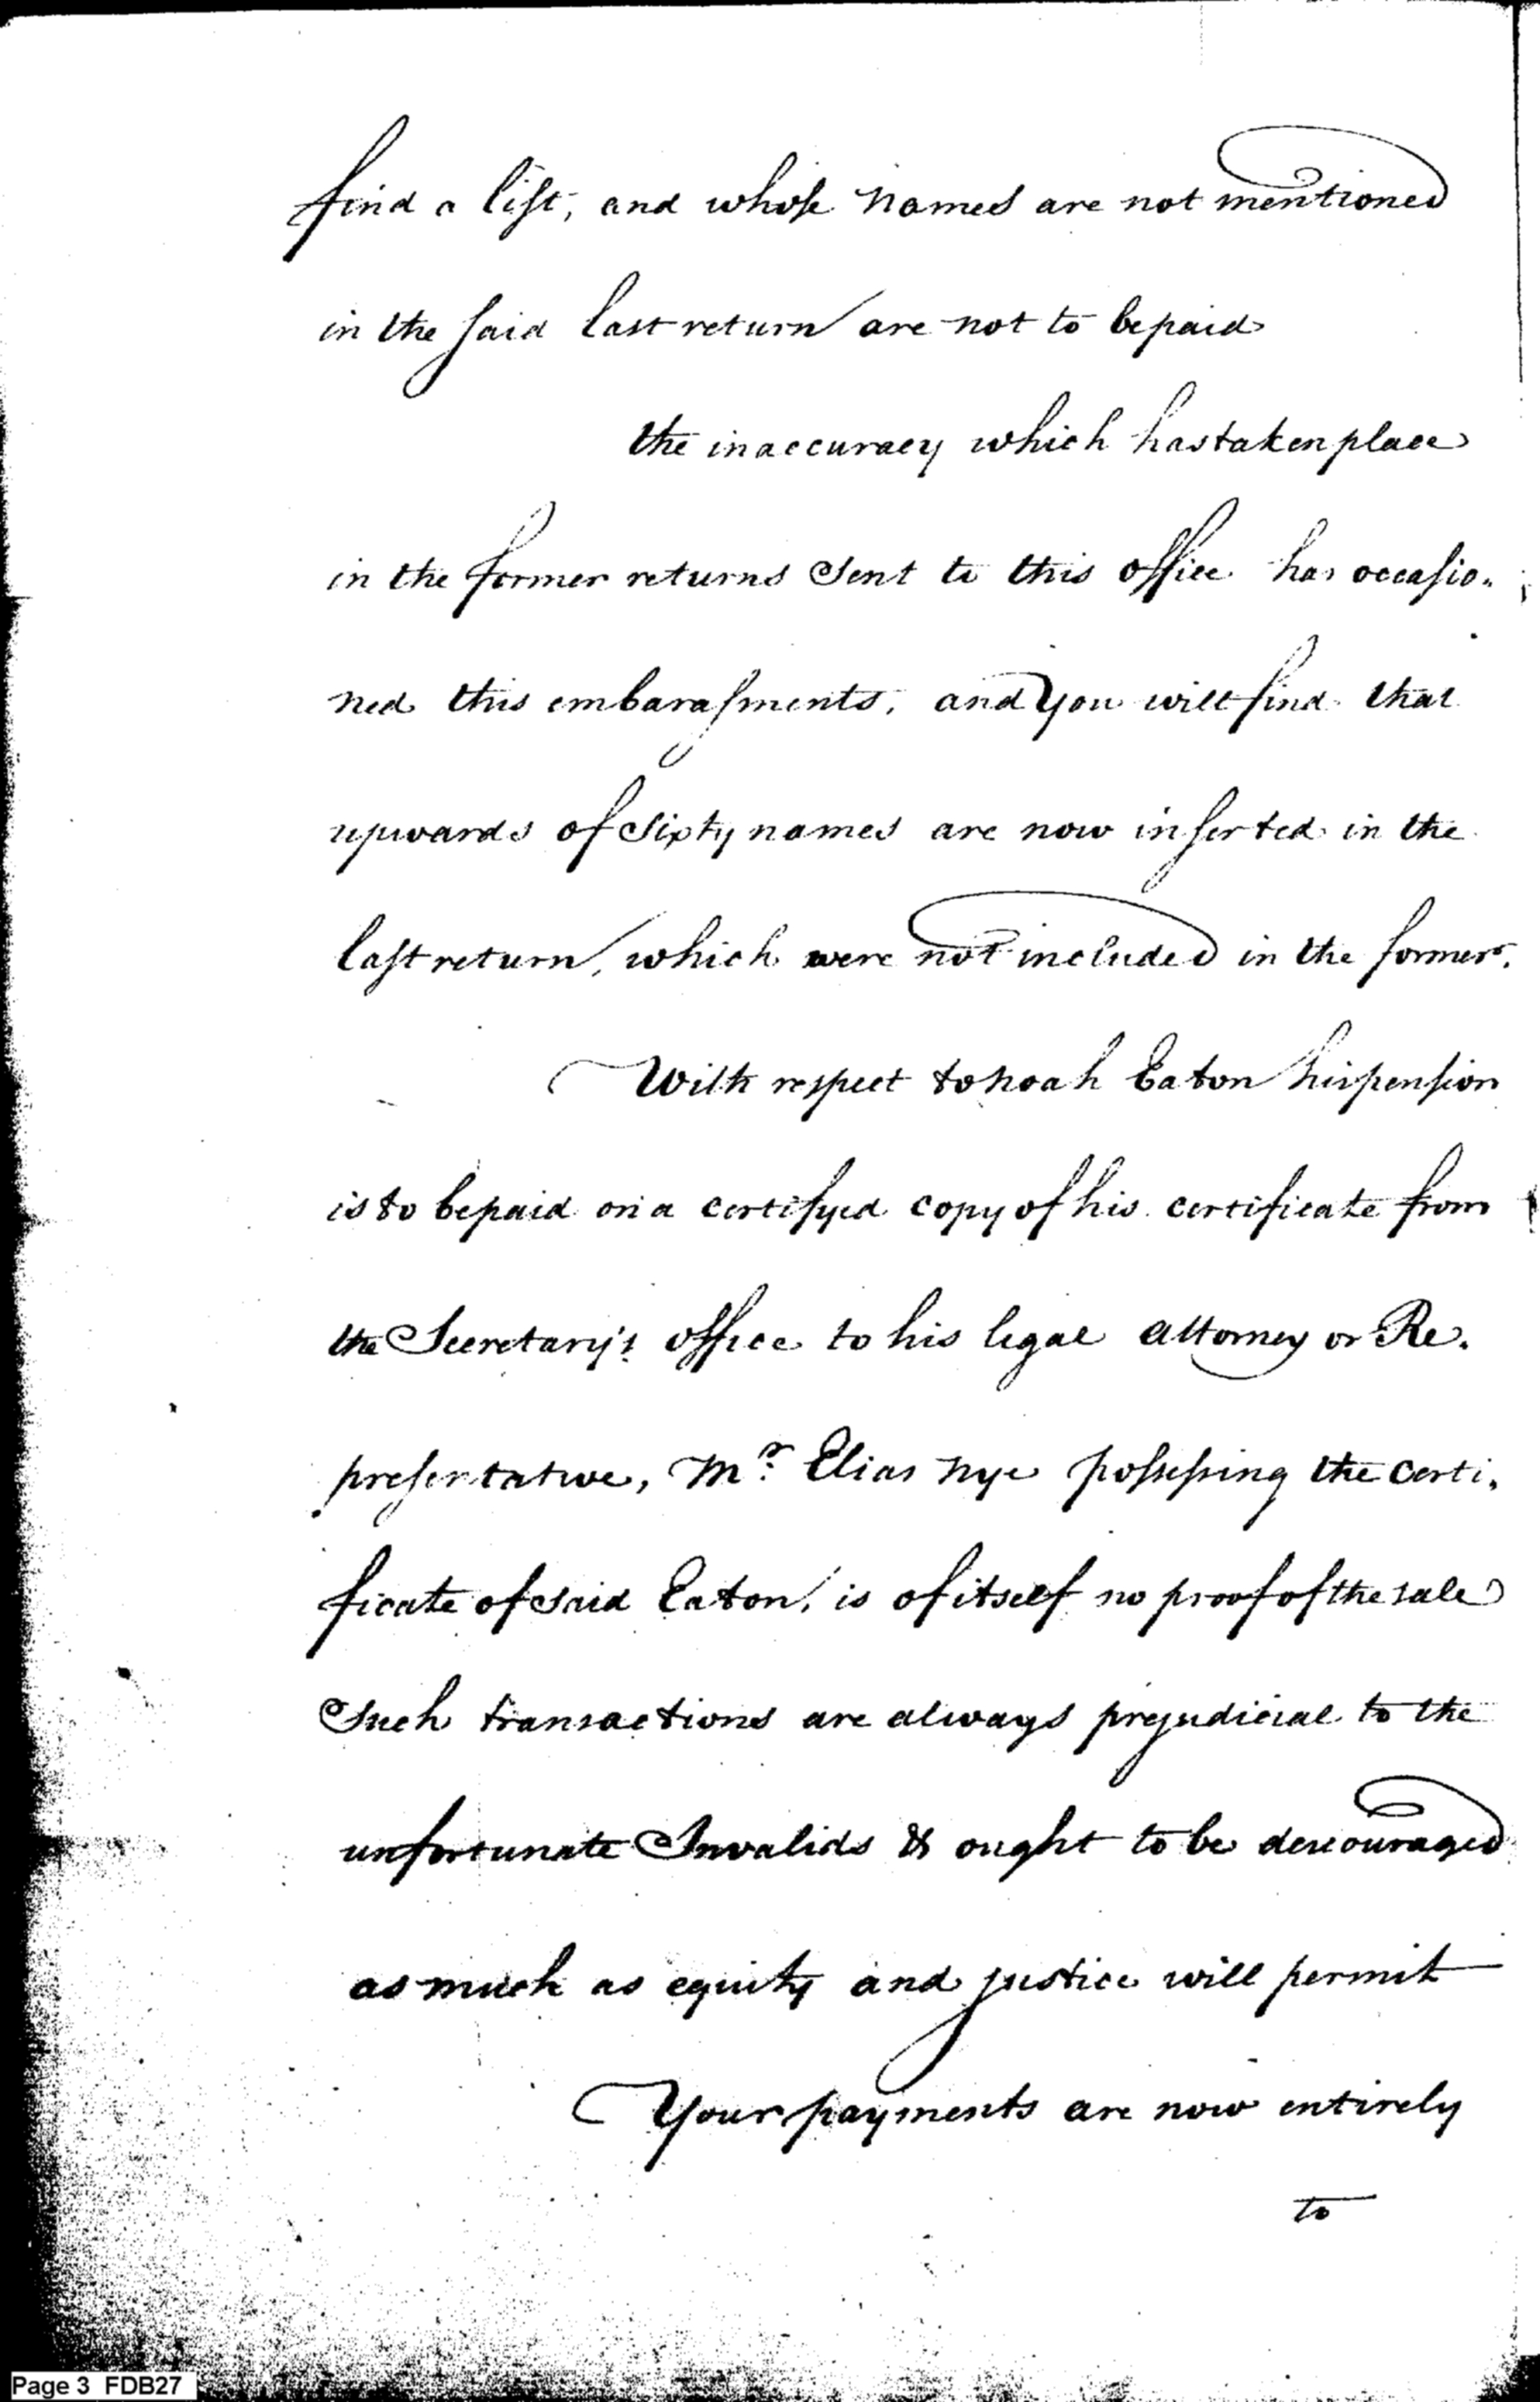 find a list, and whose names are not mentioned
in the said last return are not to be paid
the inaccuracy which has taken place
in the former returns sent to this office has occasio-
ned this embarasments, and you will find that
upwards of Sixty names are now inserted in the
last return, which were not included in the former.
With respect to noah Eaton his pension
is to be paid on a certifyed copy of his certificate from
the Secretary's office to his legal attorney or Re-
presentative, Mr. Elias nye possessing the certi-
ficate of said Eaton, is of itself no proof of the sale
Such transactions are always prejudicial to the
unfortunate Invalids & ought to be descouraged
as much as equity and justice will permit
Your payments are now entirely
to
Page 3 FDB27